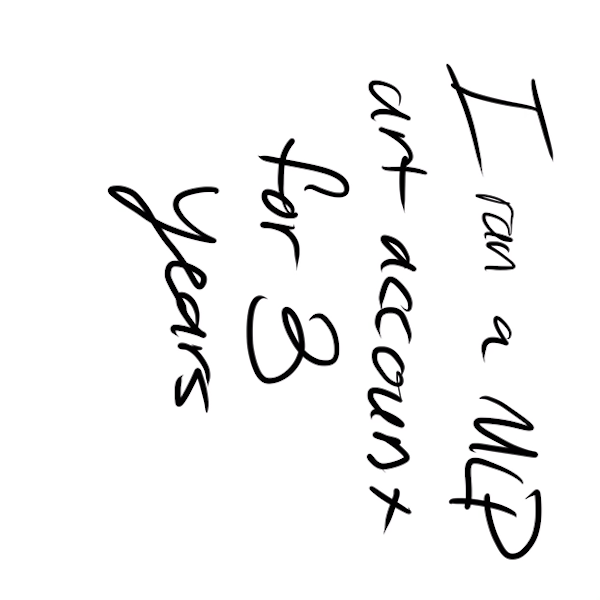 I ran a MLP
art account
for 3
years